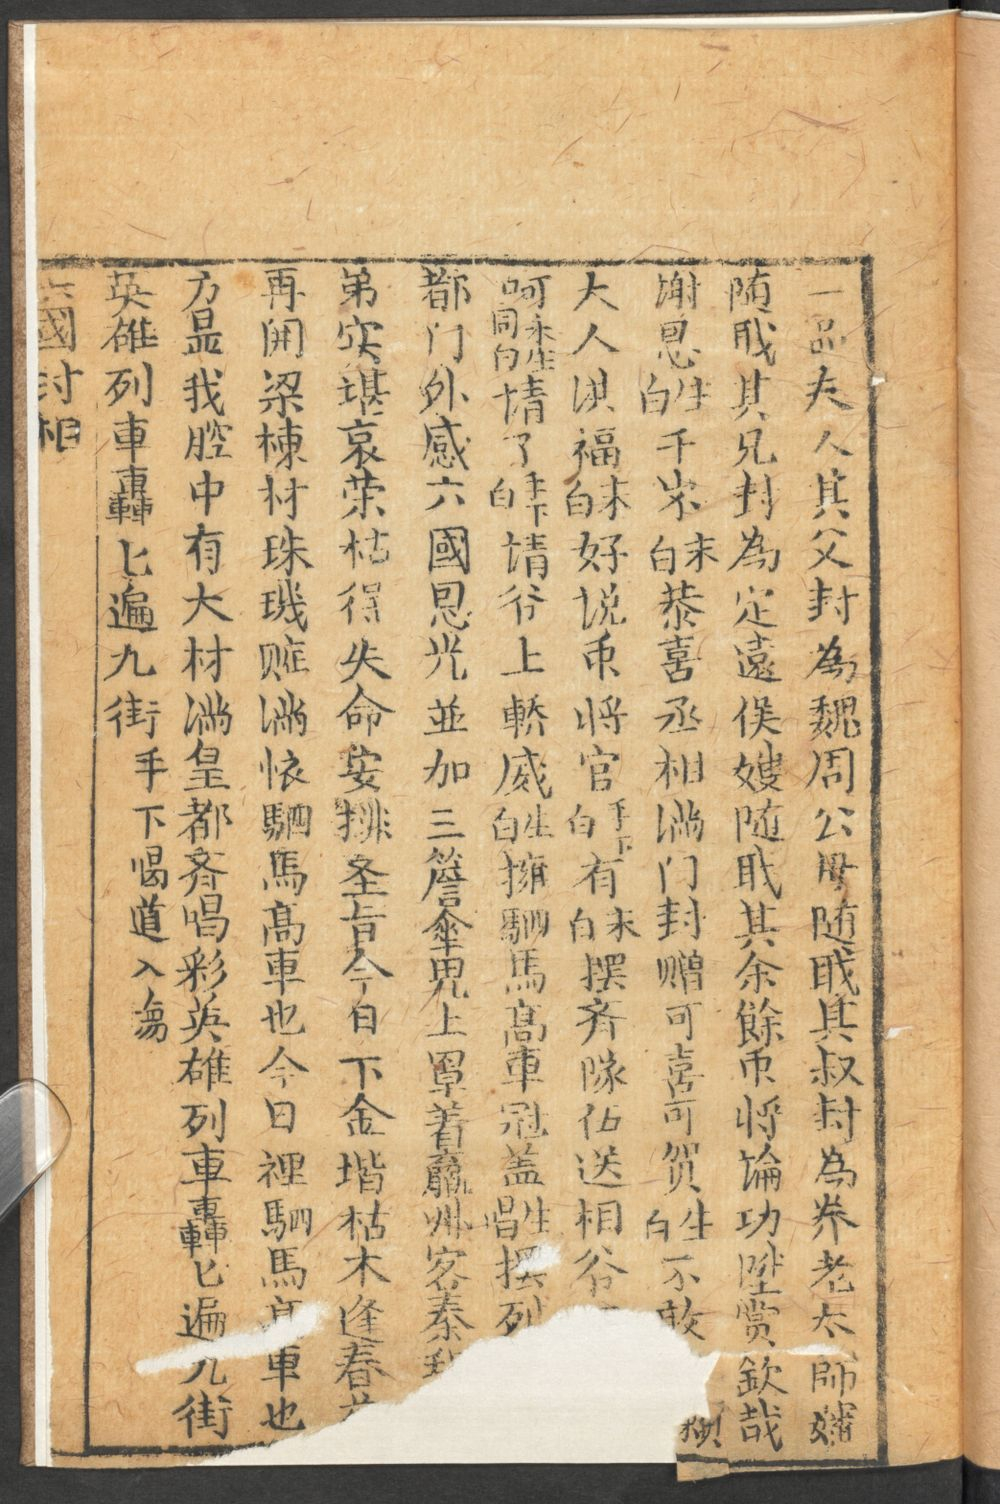 一品夫人其父封為魏周公母随戝其叔封為养老太師嬸
随戝其兄封為定遠侯嫂随戝其余餘帀将論功陞赏欽哉
谢恩生白千岁末白恭喜丞相满门封赠可喜可贺生白不敢
大人洪福末白好说帀将官手下白有末白摆齐隊伍送相爷
呵永生同白情了手下白請爷上轎威生白擁駟馬髙車冠盖生唱摆列
都门外感六國恩光並加三簷傘兠上罩着瀛州客秦
弟实堪哀荣枯得失命安排圣旨今日下金堦枯木逢春
再开梁棟材珠璣賍满懐駟馬髙車也今日裡駟馬髙車也
方显我腔中有大材满皇都齐唱彩英雄列車轟匕遍九街
英雄列車轟匕遍九街手下喝道入塲
六國封相